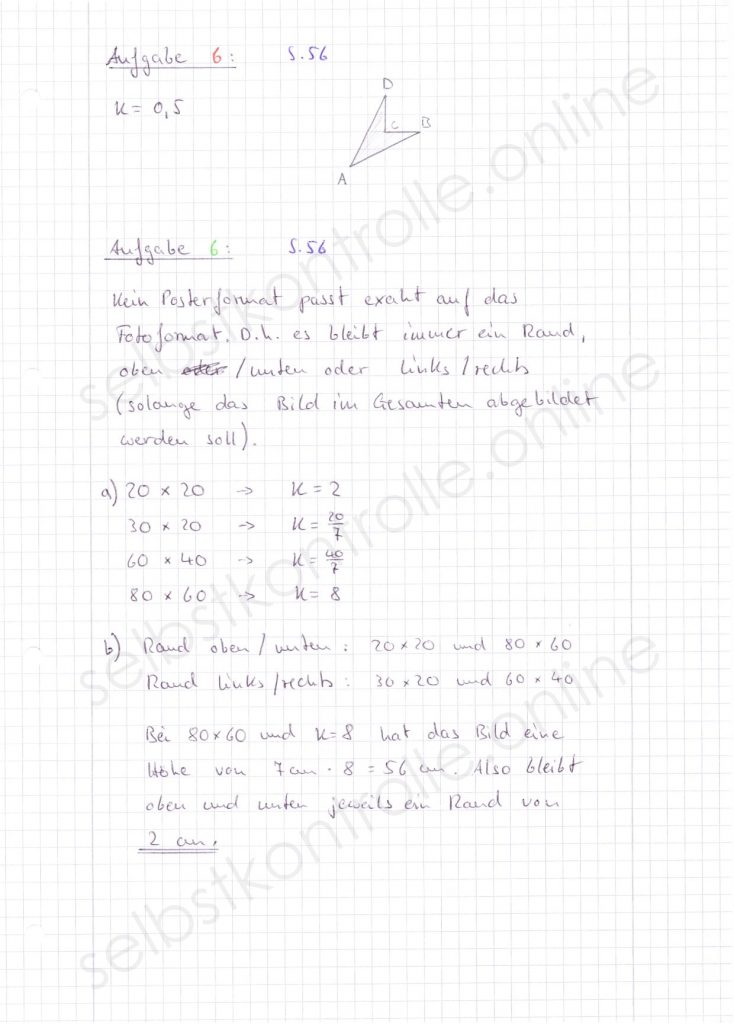 Aufgabe 6: S.56
K = 0,5
D
C B
A
Aufgabe 6: S.56
Kein Posterformat passt exakt auf das
Fotoformat. D.h. es bleibt immer ein Rand,
oben oder / unten oder links / rechts
(solange das Bild im Gesamten abgebildet
werden soll).
a) 20 x 20 -> K = 2
30 x 20 -> K = 20/7
60 x 40 -> K = 40/7
80 x 60 -> K = 8
b) Rand oben / unten: 20 x 20 und 80 x 60
Rand links / rechts: 30 x 20 und 60 x 40
Bei 80 x 60 und K = 8 hat das Bild eine
Höhe von 7 cm · 8 = 56 cm. Also bleibt
oben und unten jeweils ein Rand von
2 cm.
selbstkontrolle.online
selbstkontrolle.online
selbstkontrolle.online